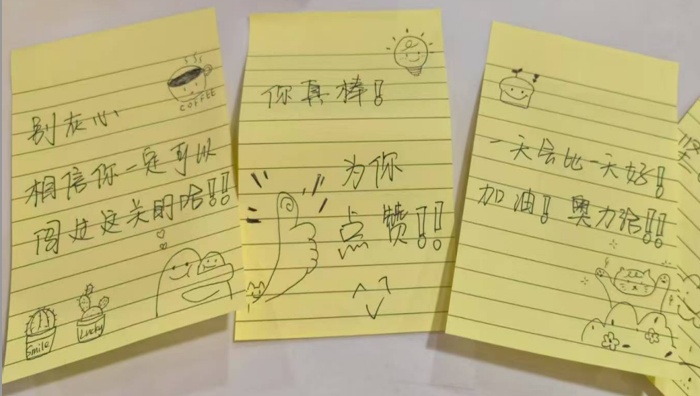 COFFEE
别灰心
相信你一定可以
闯过这关的哈!!
Smile
Lucky
你真棒!
为你
点赞!!
一天会比一天好!
加油!奥力给!!